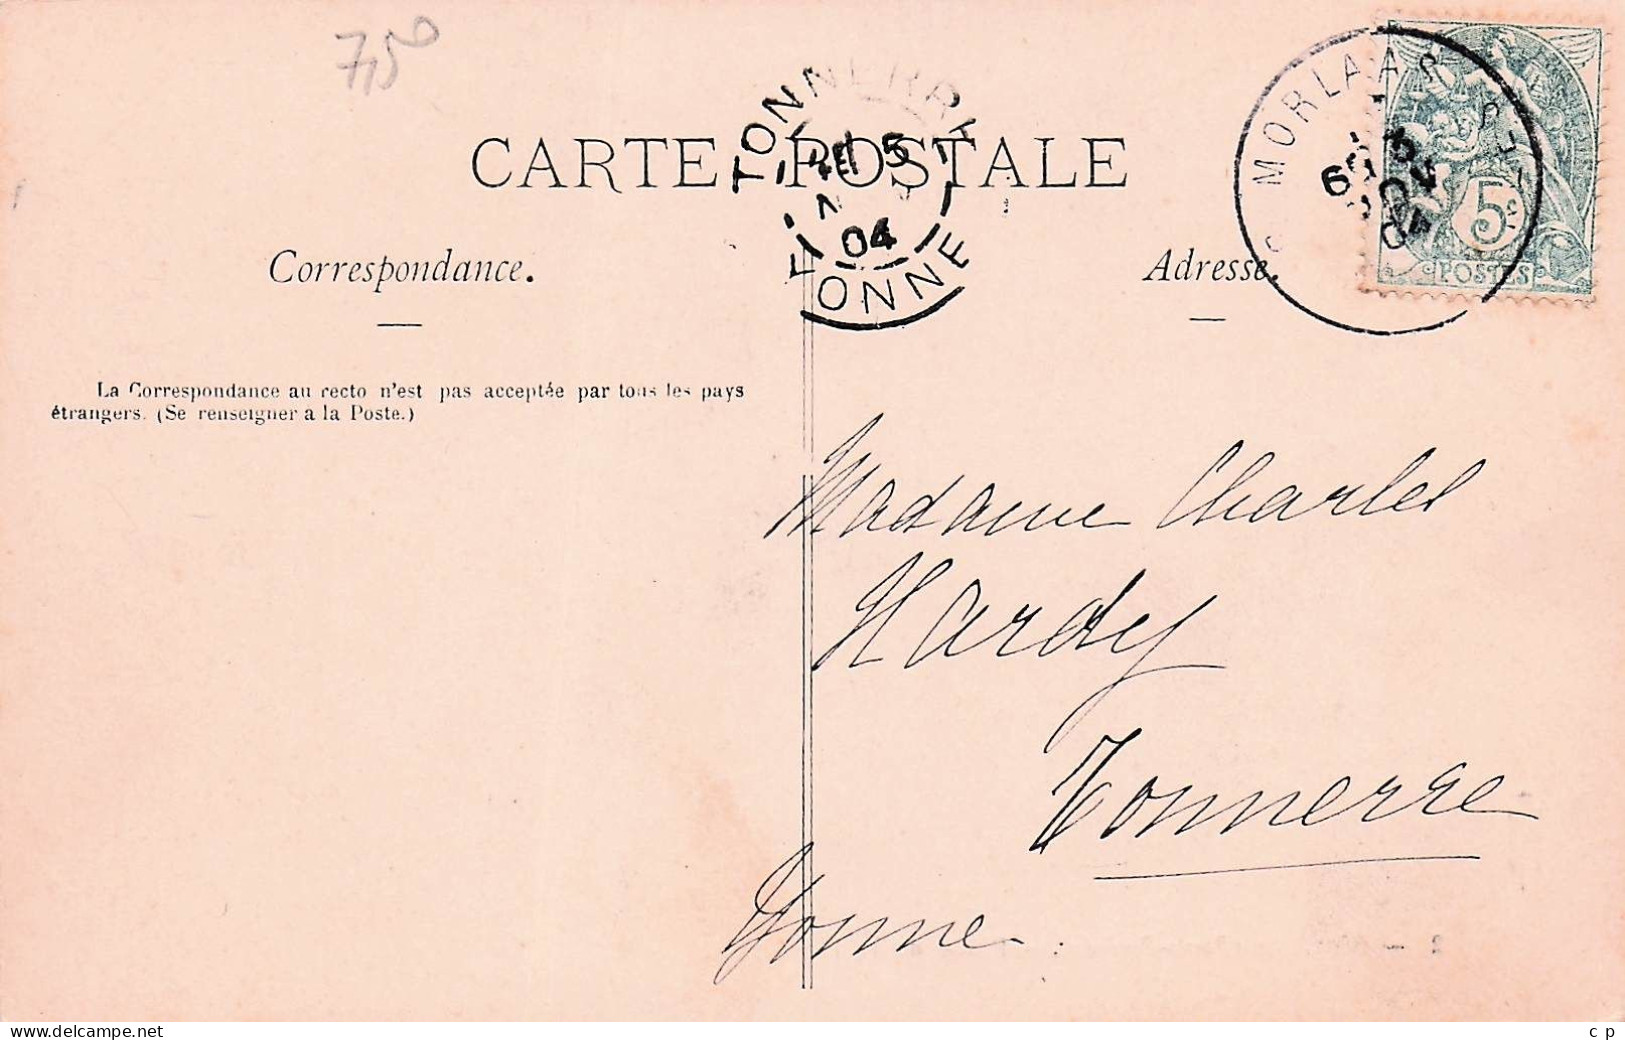 7,50
CARTE POSTALE
TONNERRE
5
04
YONNE
MORLAAS
04
5c
POSTES
Correspondance.
Adresse.
La Correspondance au recto n'est pas acceptée par tous les pays
étrangers. (Se renseigner à la Poste.)
Madame Charles
Hardy
Tonnerre
Yonne
www.delcampe.net
c p